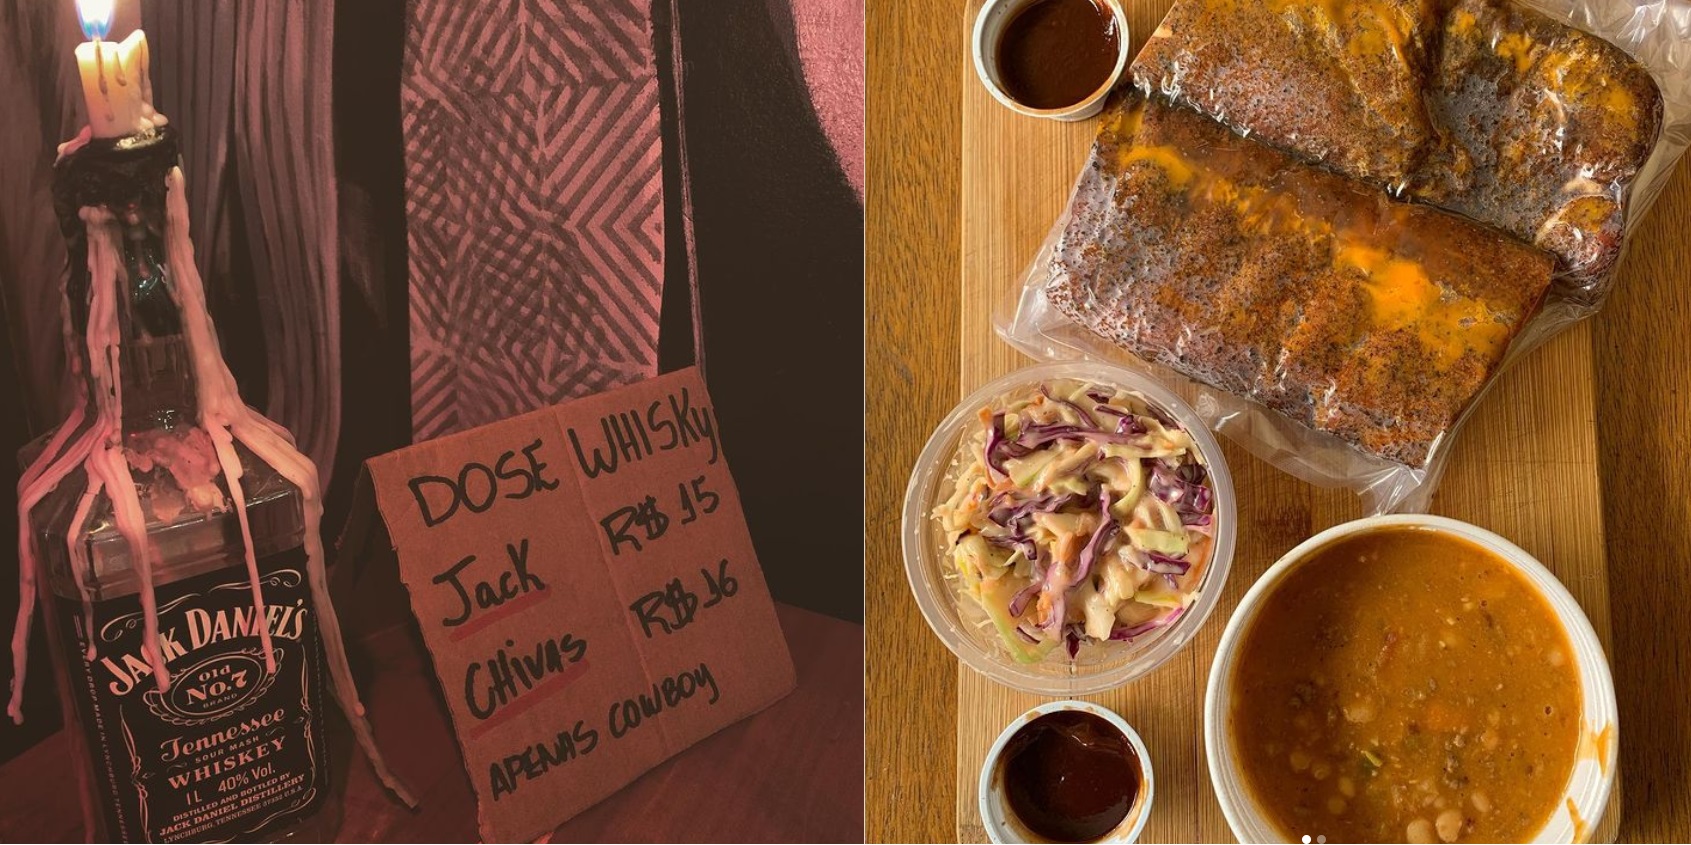 JACK DANIEL'S
Old
NO.7
BRAND
Tennessee
SOUR MASH
WHISKEY
1L 40% Vol.
DISTILLED AND BOTTLED BY
JACK DANIEL DISTILLERY
LYNCHBURG, TENNESSEE 37352 U.S.A.
DOSE WHISKY
JACK R$ 15
CHIVAS R$ 16
APENAS COWBOY